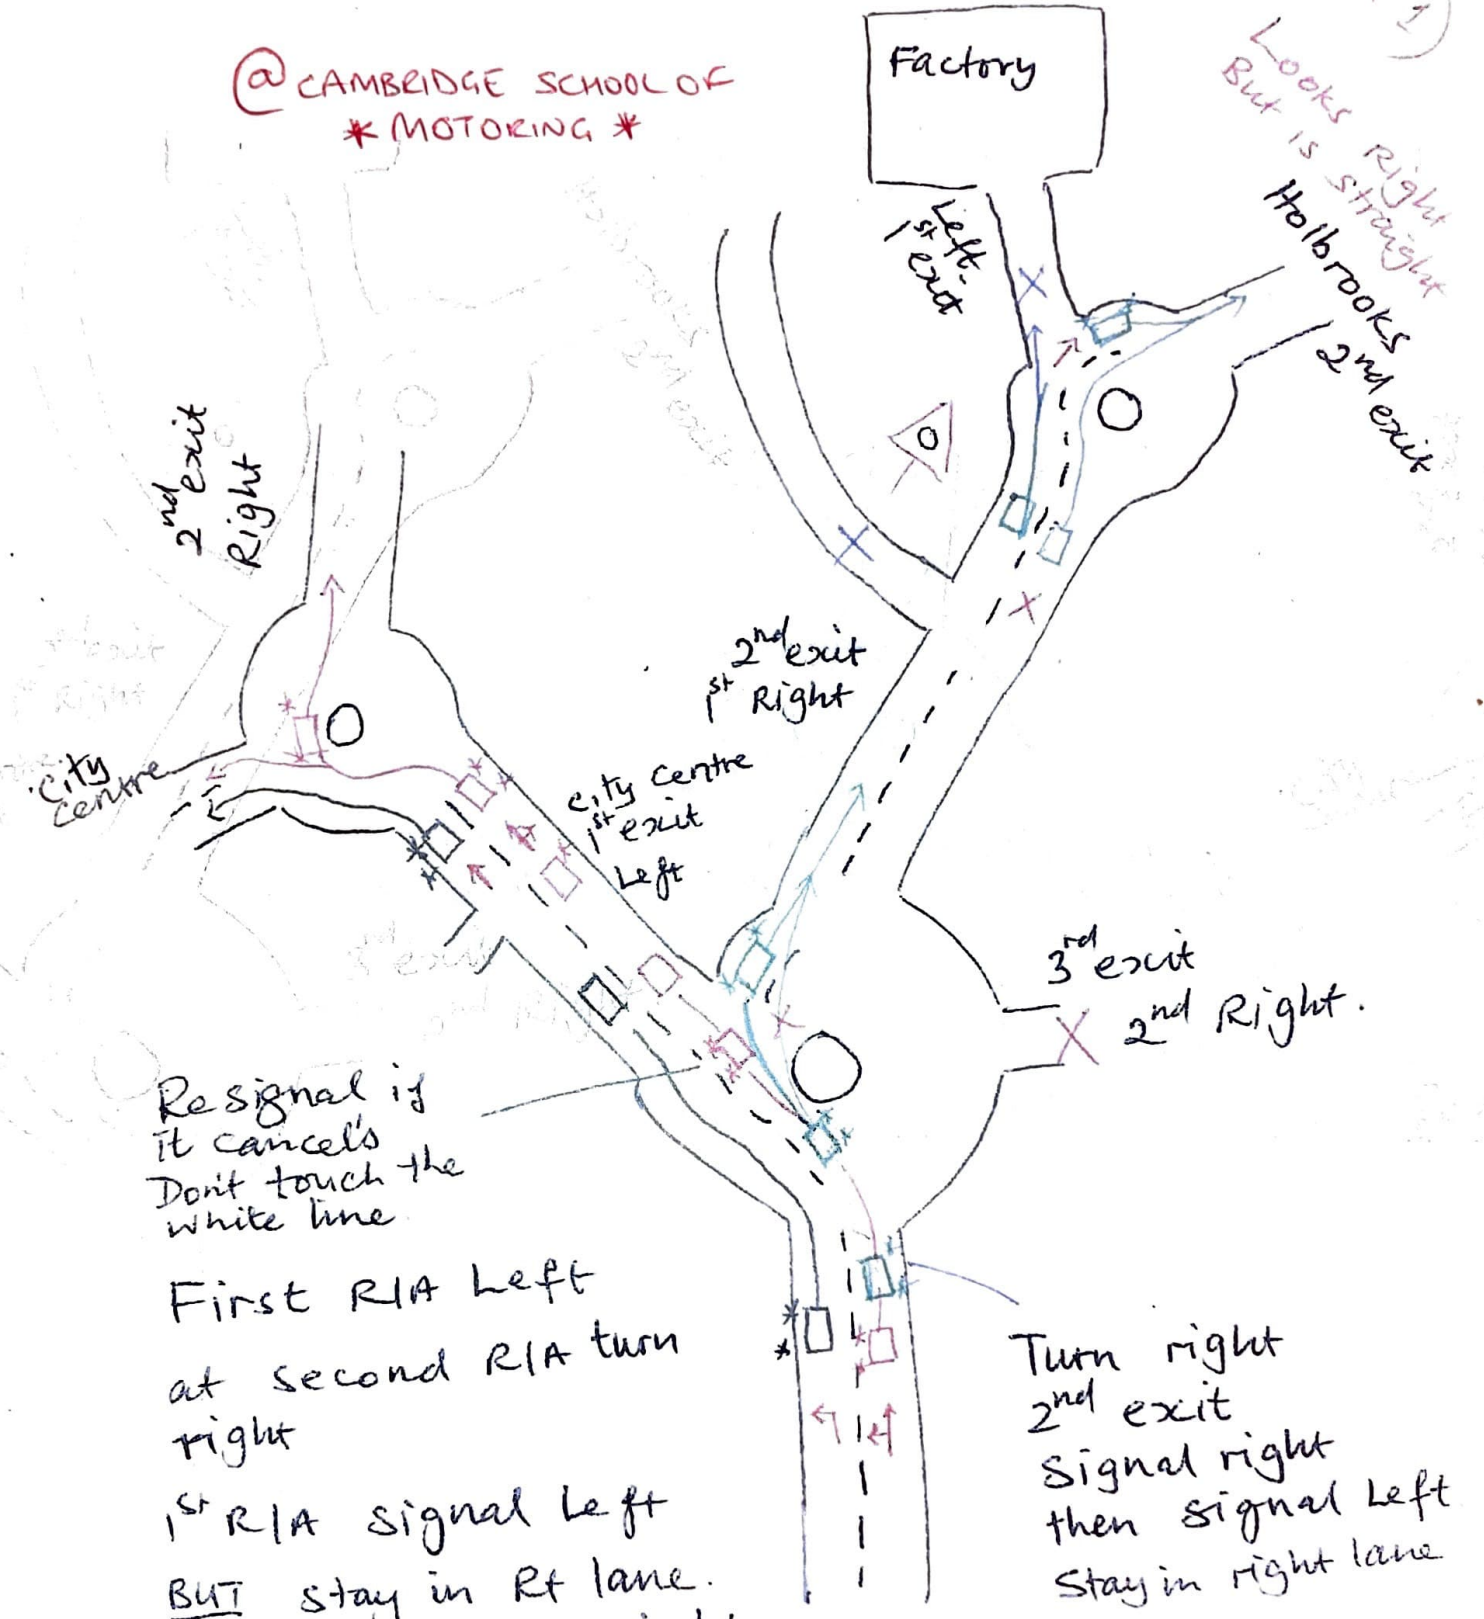 1)
@ CAMBRIDGE SCHOOL OF
* MOTORING *
Factory
Looks Right
But is straight
Holbrooks
2nd exit
Left-
1st exit
2nd exit
Right
2nd exit
1st Right
City
centre
City centre
1st exit
Left
3rd exit
2nd Right.
Resignal if
it cancels
Don't touch the
white line
First R/A Left
at second R/A turn
right
1st R/A signal Left
BUT stay in Rt lane.
Turn right
2nd exit
Signal right
then signal Left
Stay in right lane